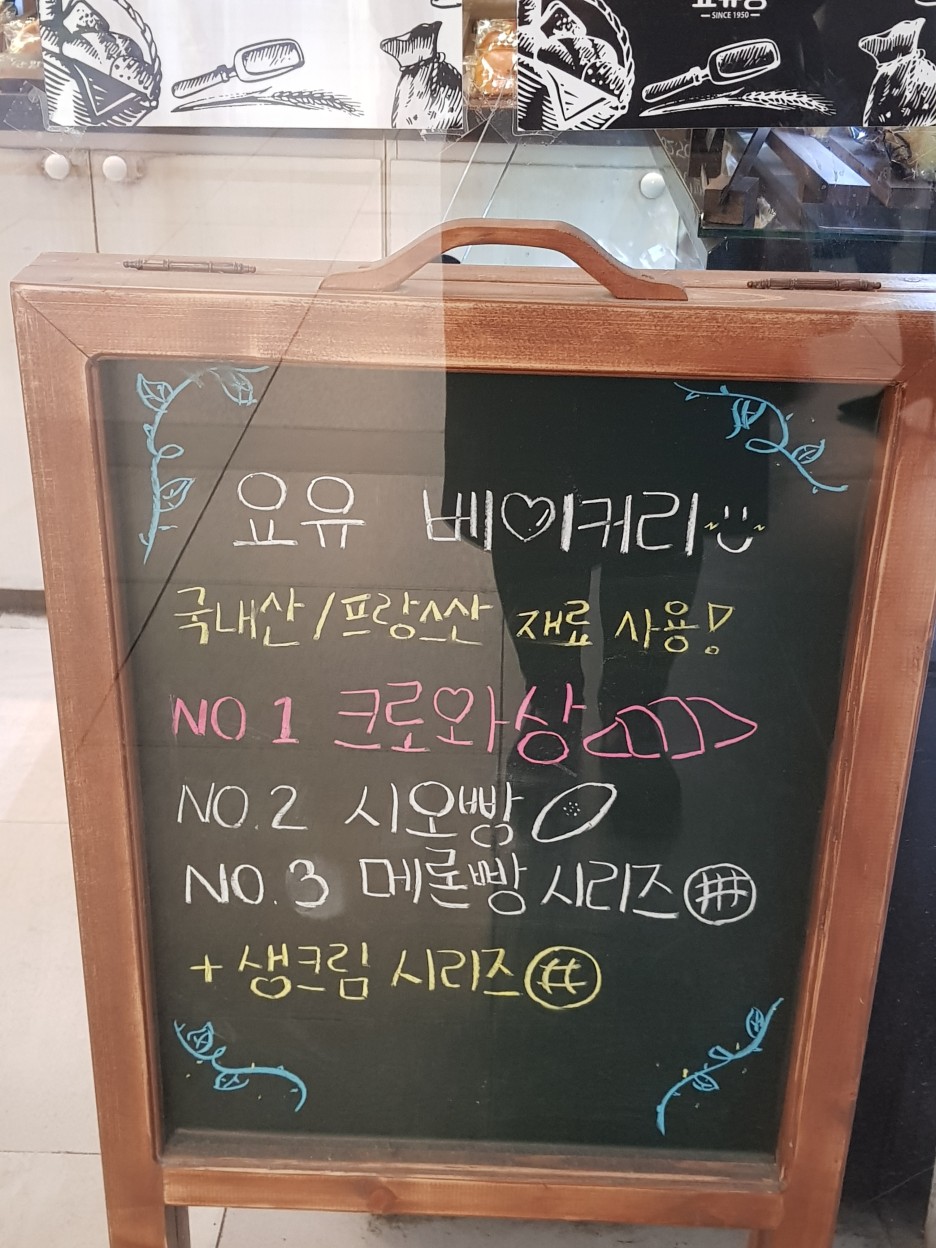 SINCE 1950
요유 베이커리
국내산/프랑스산 재료 사용!
NO 1 크로와상
NO.2 시오빵
NO.3 메론빵 시리즈
+ 생크림 시리즈